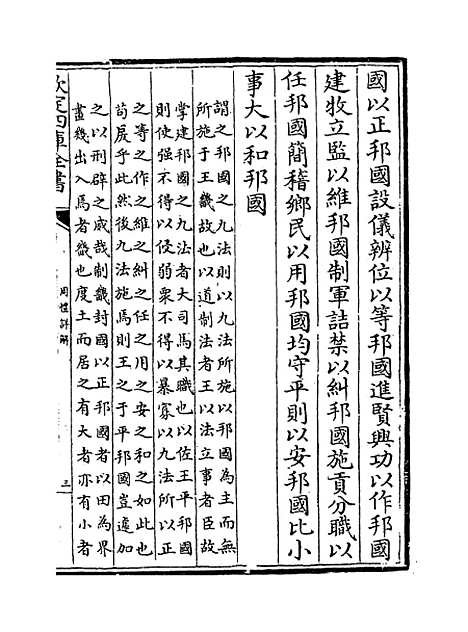 國以正邦國設儀辨位以等邦國進賢興功以作邦國
建牧立監以維邦國制軍詰禁以糾邦國施貢分職以
任邦國簡稽鄉民以用邦國均守平則以安邦國比小
事大以和邦國
謂之邦國之九法則以九法所施以邦國為主而無
所施于王畿故也以道制法者王以法立事者臣故
掌建邦國之九法者大司馬其職也以佐王平邦國
則使强不得以侵弱衆不得以暴寡以九法所以正
之等之作之維之糾之任之用之安之和之如此也
苟戾乎此然後九法施焉則王之于平邦國豈遽加
之以刑辟之威哉制畿封國以正邦國者以田為界
畫畿出入焉者畿也度土而居之有大者亦有小者
欽定四庫全書
周禮詳解
三